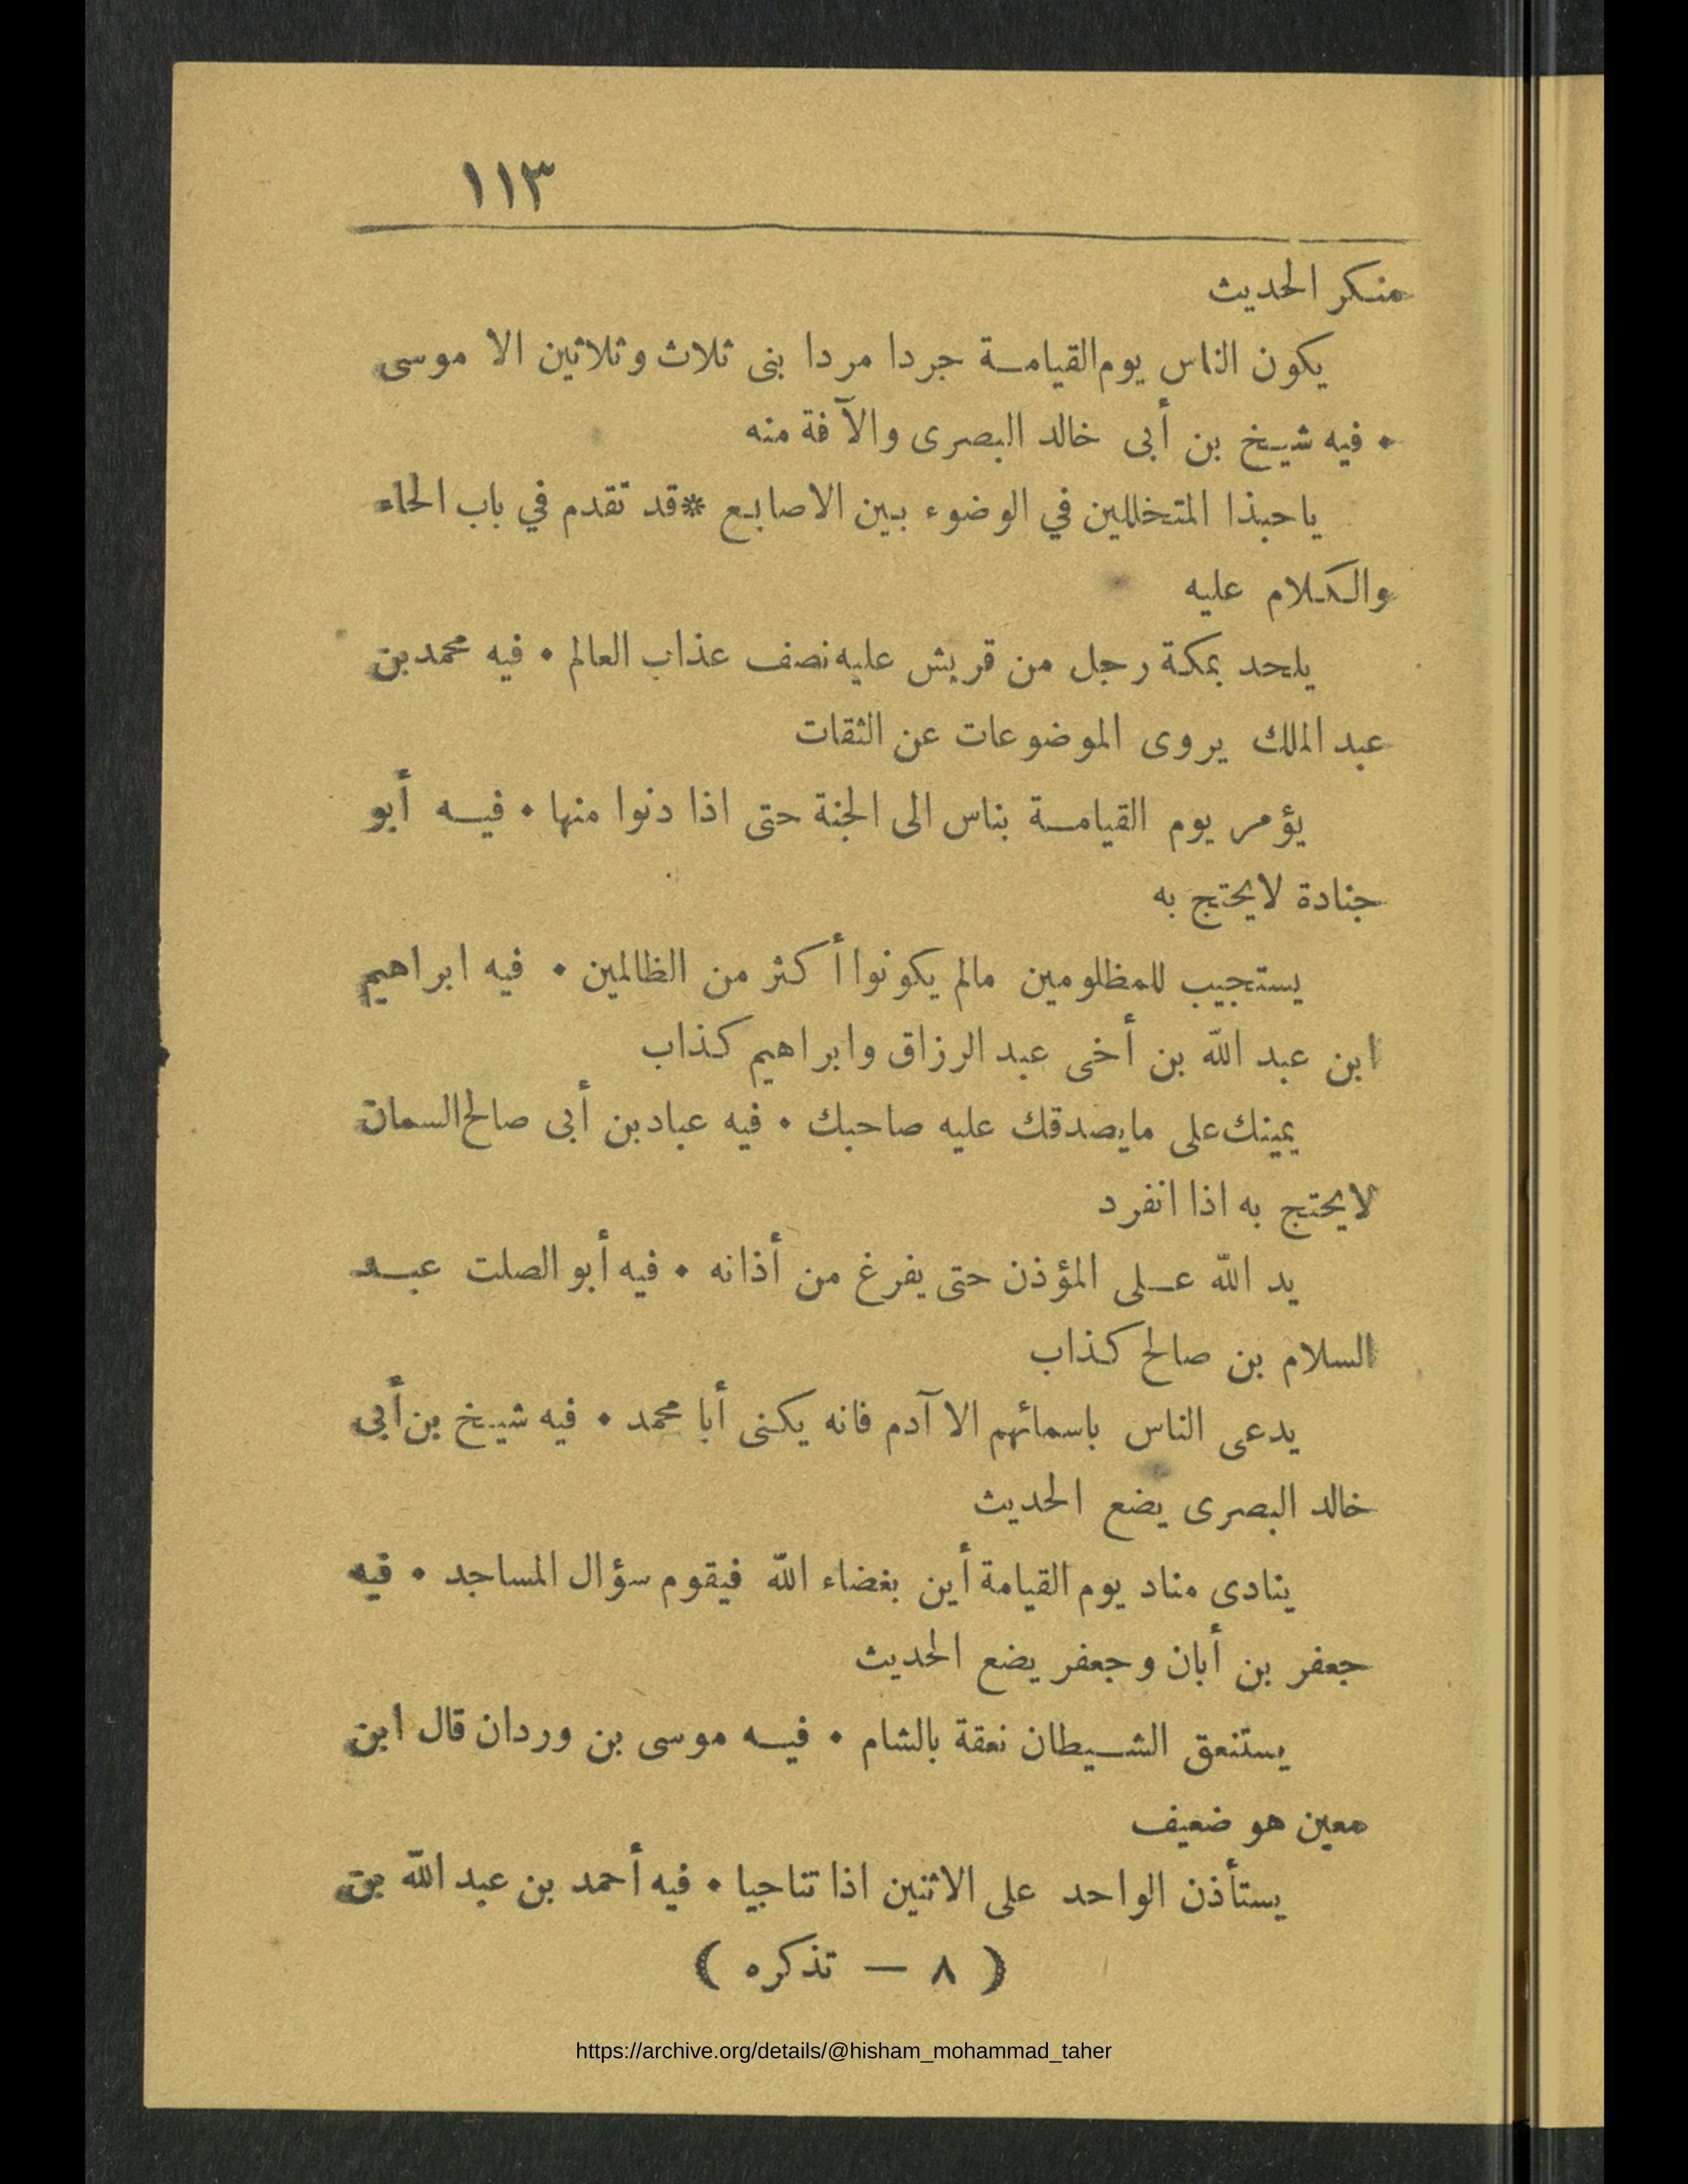 ١١٣
منكر الحديث
يكون الناس يوم القيامة جردا مردا بنى ثلاث وثلاثين الا موسى
• فيه شيخ بن أبى خالد البصرى والآفة منه
ياحبذا المتخللين في الوضوء بين الاصابع *قد تقدم في باب الحاء
والكلام عليه
يلحد بمكة رجل من قريش عليه نصف عذاب العالم • فيه محمد بن
عبد الملك يروى الموضوعات عن الثقات
يؤمر يوم القيامة بناس الى الجنة حتى اذا دنوا منها • فيه أبو
جنادة لايحتج به
يستجيب للمظلومين مالم يكونوا أكثر من الظالمين • فيه ابراهيم
ابن عبد الله بن أخى عبد الرزاق وابراهيم كذاب
يمينك على مايصدقك عليه صاحبك • فيه عباد بن أبى صالح السمان
لايحتج به اذا انفرد
يد الله على المؤذن حتى يفرغ من أذانه • فيه أبو الصلت عبد
السلام بن صالح كذاب
يدعى الناس باسمائهم الا آدم فانه يكنى أبا محمد • فيه شيخ بن أبى
خالد البصرى يضع الحديث
ينادى مناد يوم القيامة أين بغضاء الله فيقوم سؤال المساجد • فيه
جعفر بن أبان وجعفر يضع الحديث
يستنعق الشيطان نعقة بالشام • فيه موسى بن وردان قال ابن
معين هو ضعيف
يستأذن الواحد على الاثنين اذا تناجيا • فيه أحمد بن عبد الله بن
( ٨ — تذكره )
https://archive.org/details/@hisham_mohammad_taher